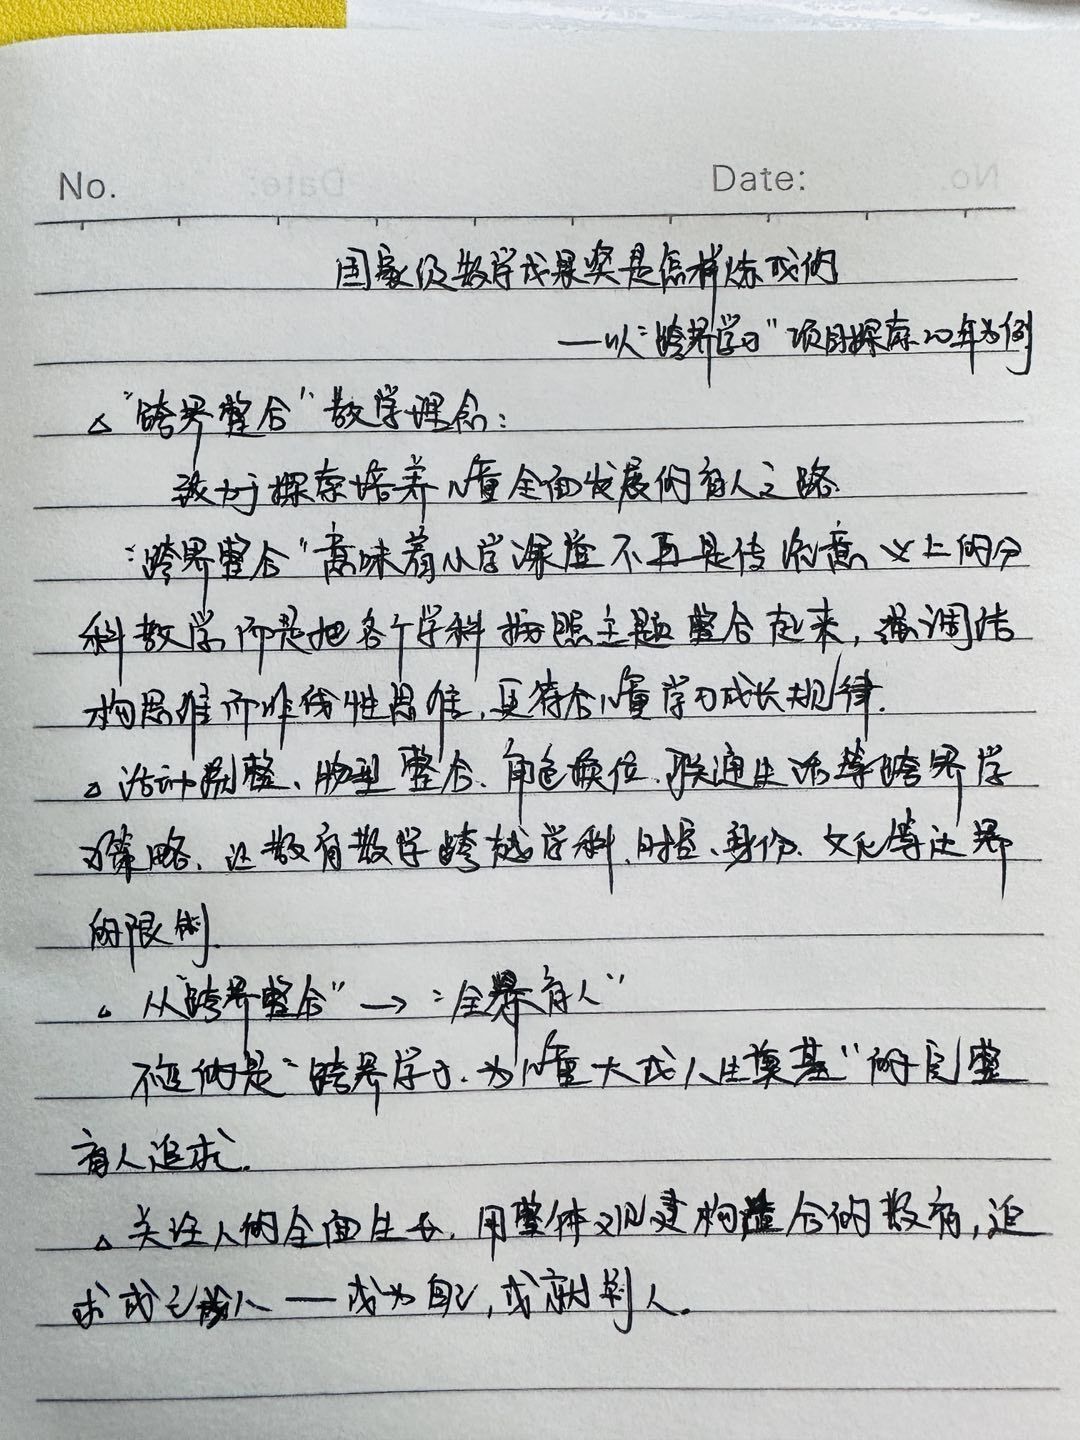 No. Date:
国家级教学成果奖是怎样炼成的
——以“跨界学习”项目探索20年为例
△“跨界整合”教学理念：
致力于探索培养儿童全面发展的育人之路.
“跨界整合”意味着小学课堂不再是传统意义上的分
科教学,而是把各个学科按照主题整合起来，强调结
构思维而非线性思维,更符合儿童学习成长规律.
△活动 整、 整合、角色换位、联通生活等跨界学
习策略、让教育教学跨越学科、时空、身份、文化等边界
的限制.
△从“跨界整合”→“全景育人”
不变的是“跨界学习.为儿童大成人生奠基”的完整
育人追求.
△关注人的全面生长.用整体观建构 合的教育,追
求成己成人——成为自己,成就别人.